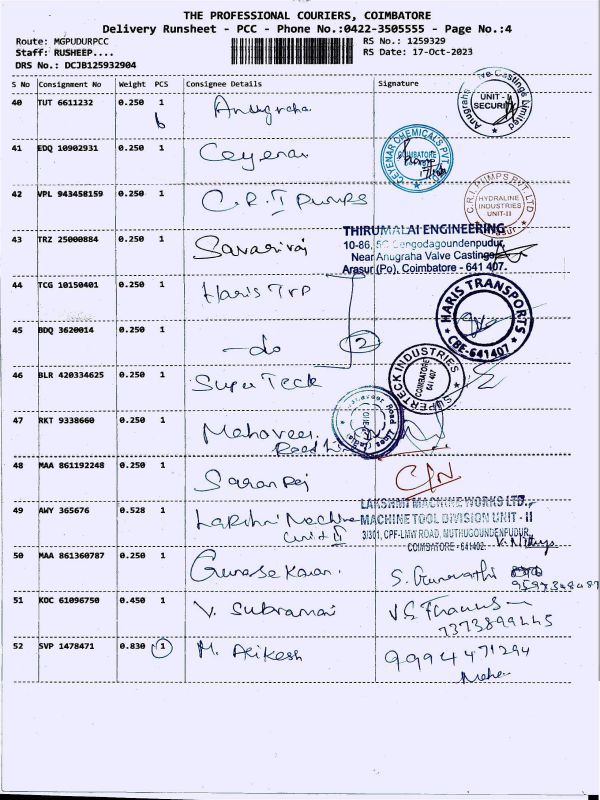 THE PROFESSIONAL COURIERS, COIMBATORE
Delivery Runsheet - PCC - Phone No.:0422-3505555 - Page No.:4
Route: MGPUDURPCC
RS No.: 1259329
Staff: RUSHEEP....
RS Date: 17-Oct-2023
DRS No.: DCJB125932904
S No Consignment No Weight PCS Consignee Details Signature
40 TUT 6611232 0.250 1 Anugraha
Anugraha Valve Castings Limited UNIT- SECURITY
41 EDQ 10902931 0.250 1 Ceyenar
CEYENAR CHEMICALS PVT COIMBATORE
42 VPL 943458159 0.250 1 C.R.I Pumps
C.R.I. PUMPS PVT. LTD HYDRALINE INDUSTRIES UNIT-II Arasur
43 TRZ 25000884 0.250 1
THIRUMALAI ENGINEERING
10-86, Sengodagoundenpudur,
Near Anugraha Valve Castings
Arasur (Po), Coimbatore - 641 407.
44 TCG 10150401 0.250 1 Haris Trp
HARIS TRANSPORTS CBE-641407
45 BDQ 3620014 0.250 1 - do 2
46 BLR 420334625 0.250 1 Super Teck
SUPERTECK INDUSTRIES COIMBATORE 641 407
47 RKT 9338660 0.250 1 Mahaveer
Road
48 MAA 861192248 0.250 1 Saran Raj
49 AWY 365676 0.528 1 Lakshmi Machine
Unit II
LAKSHMI MACHINE WORKS LTD.,
MACHINE TOOL DIVISION UNIT - II
3/301, CPF-LMW ROAD, MUTHUGOUNDENPUDUR,
COIMBATORE - 641402.
50 MAA 861360787 0.250 1 S.
51 KOC 61096750 0.450 1 V. Subramai
7373899445
52 SVP 1478471 0.830 1 M. Arikesh 9994471294